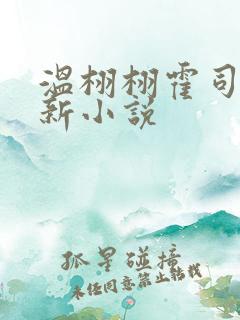 温栩栩霍司
新小说
孤星碰撞
未经同意禁止转载